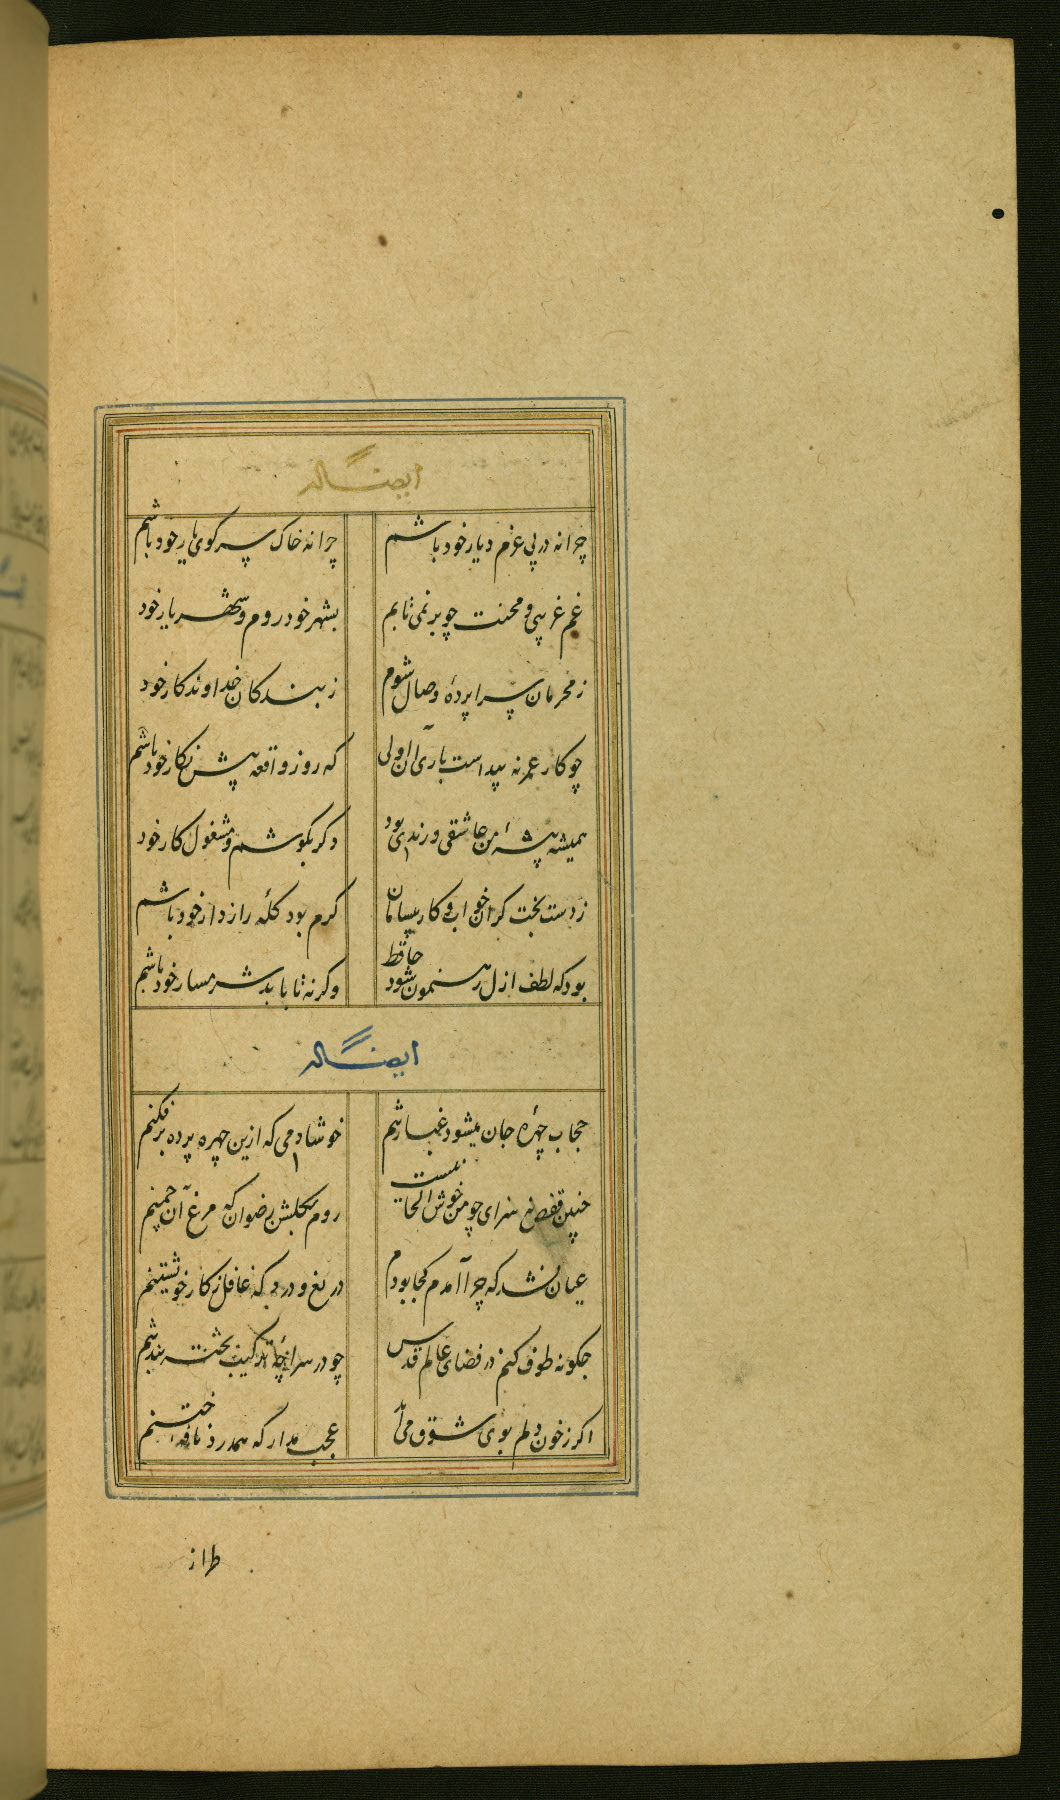 ایضا له
چرا نه در پی عزم دیار خود باشم
چرا نه خاک سر کوی یار خود باشم
غم غریبی و محنت چو بر نمی تابم
بشهر خود روم و شهریار خود
ز محرمان سراپرده وصال شوم
ز بندکان خداوندکار خود
چو کار عمر نه پیداست باری آن اولی
که روز واقعه پیش نکار خود باشم
همیشه پیشهٔ من عاشقی و رندی بود
دکر بکوشم و مشغول کار خود
ز دست بخت کران خواب و کار بیسامان
کرم بود کلهٔ راز دار خود باشم
بود که لطف ازل رهنمون شود حافظ
وکرنه تا بابد شرمسار خود باشم
ایضا له
حجاب چهرهٔ جان میشود غبار تنم
خوشا دمی که ازین چهره پرده برفکنم
چنین قفس نه سزای چو من خوش الحانیست
روم بکلشن رضوان که مرغ آن چمنم
عیان نشد که چرا آمدم کجا بودم
دریغ و درد که غافل ز کار خویشتنم
چکونه طوف کنم در فضای عالم قدس
چو در سراچهٔ ترکیب تخته بند تنم
اکر ز خون دلم بوی شوق می آید
عجب مدار که همدرد نافهٔ ختنم
طراز